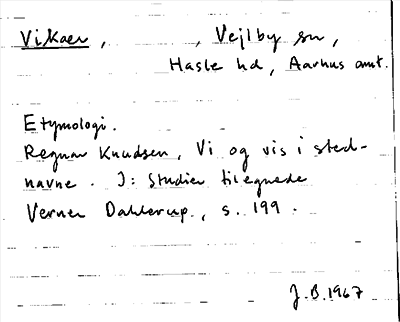 Vikaer, , Vejlby sn,
Hasle hd, Aarhus amt.
Etymologi.
Regnar Knudsen, Vi og vis i sted-
navne. I: Studier tilegnede
Verner Dahlerup, s. 199.
J.B. 1967